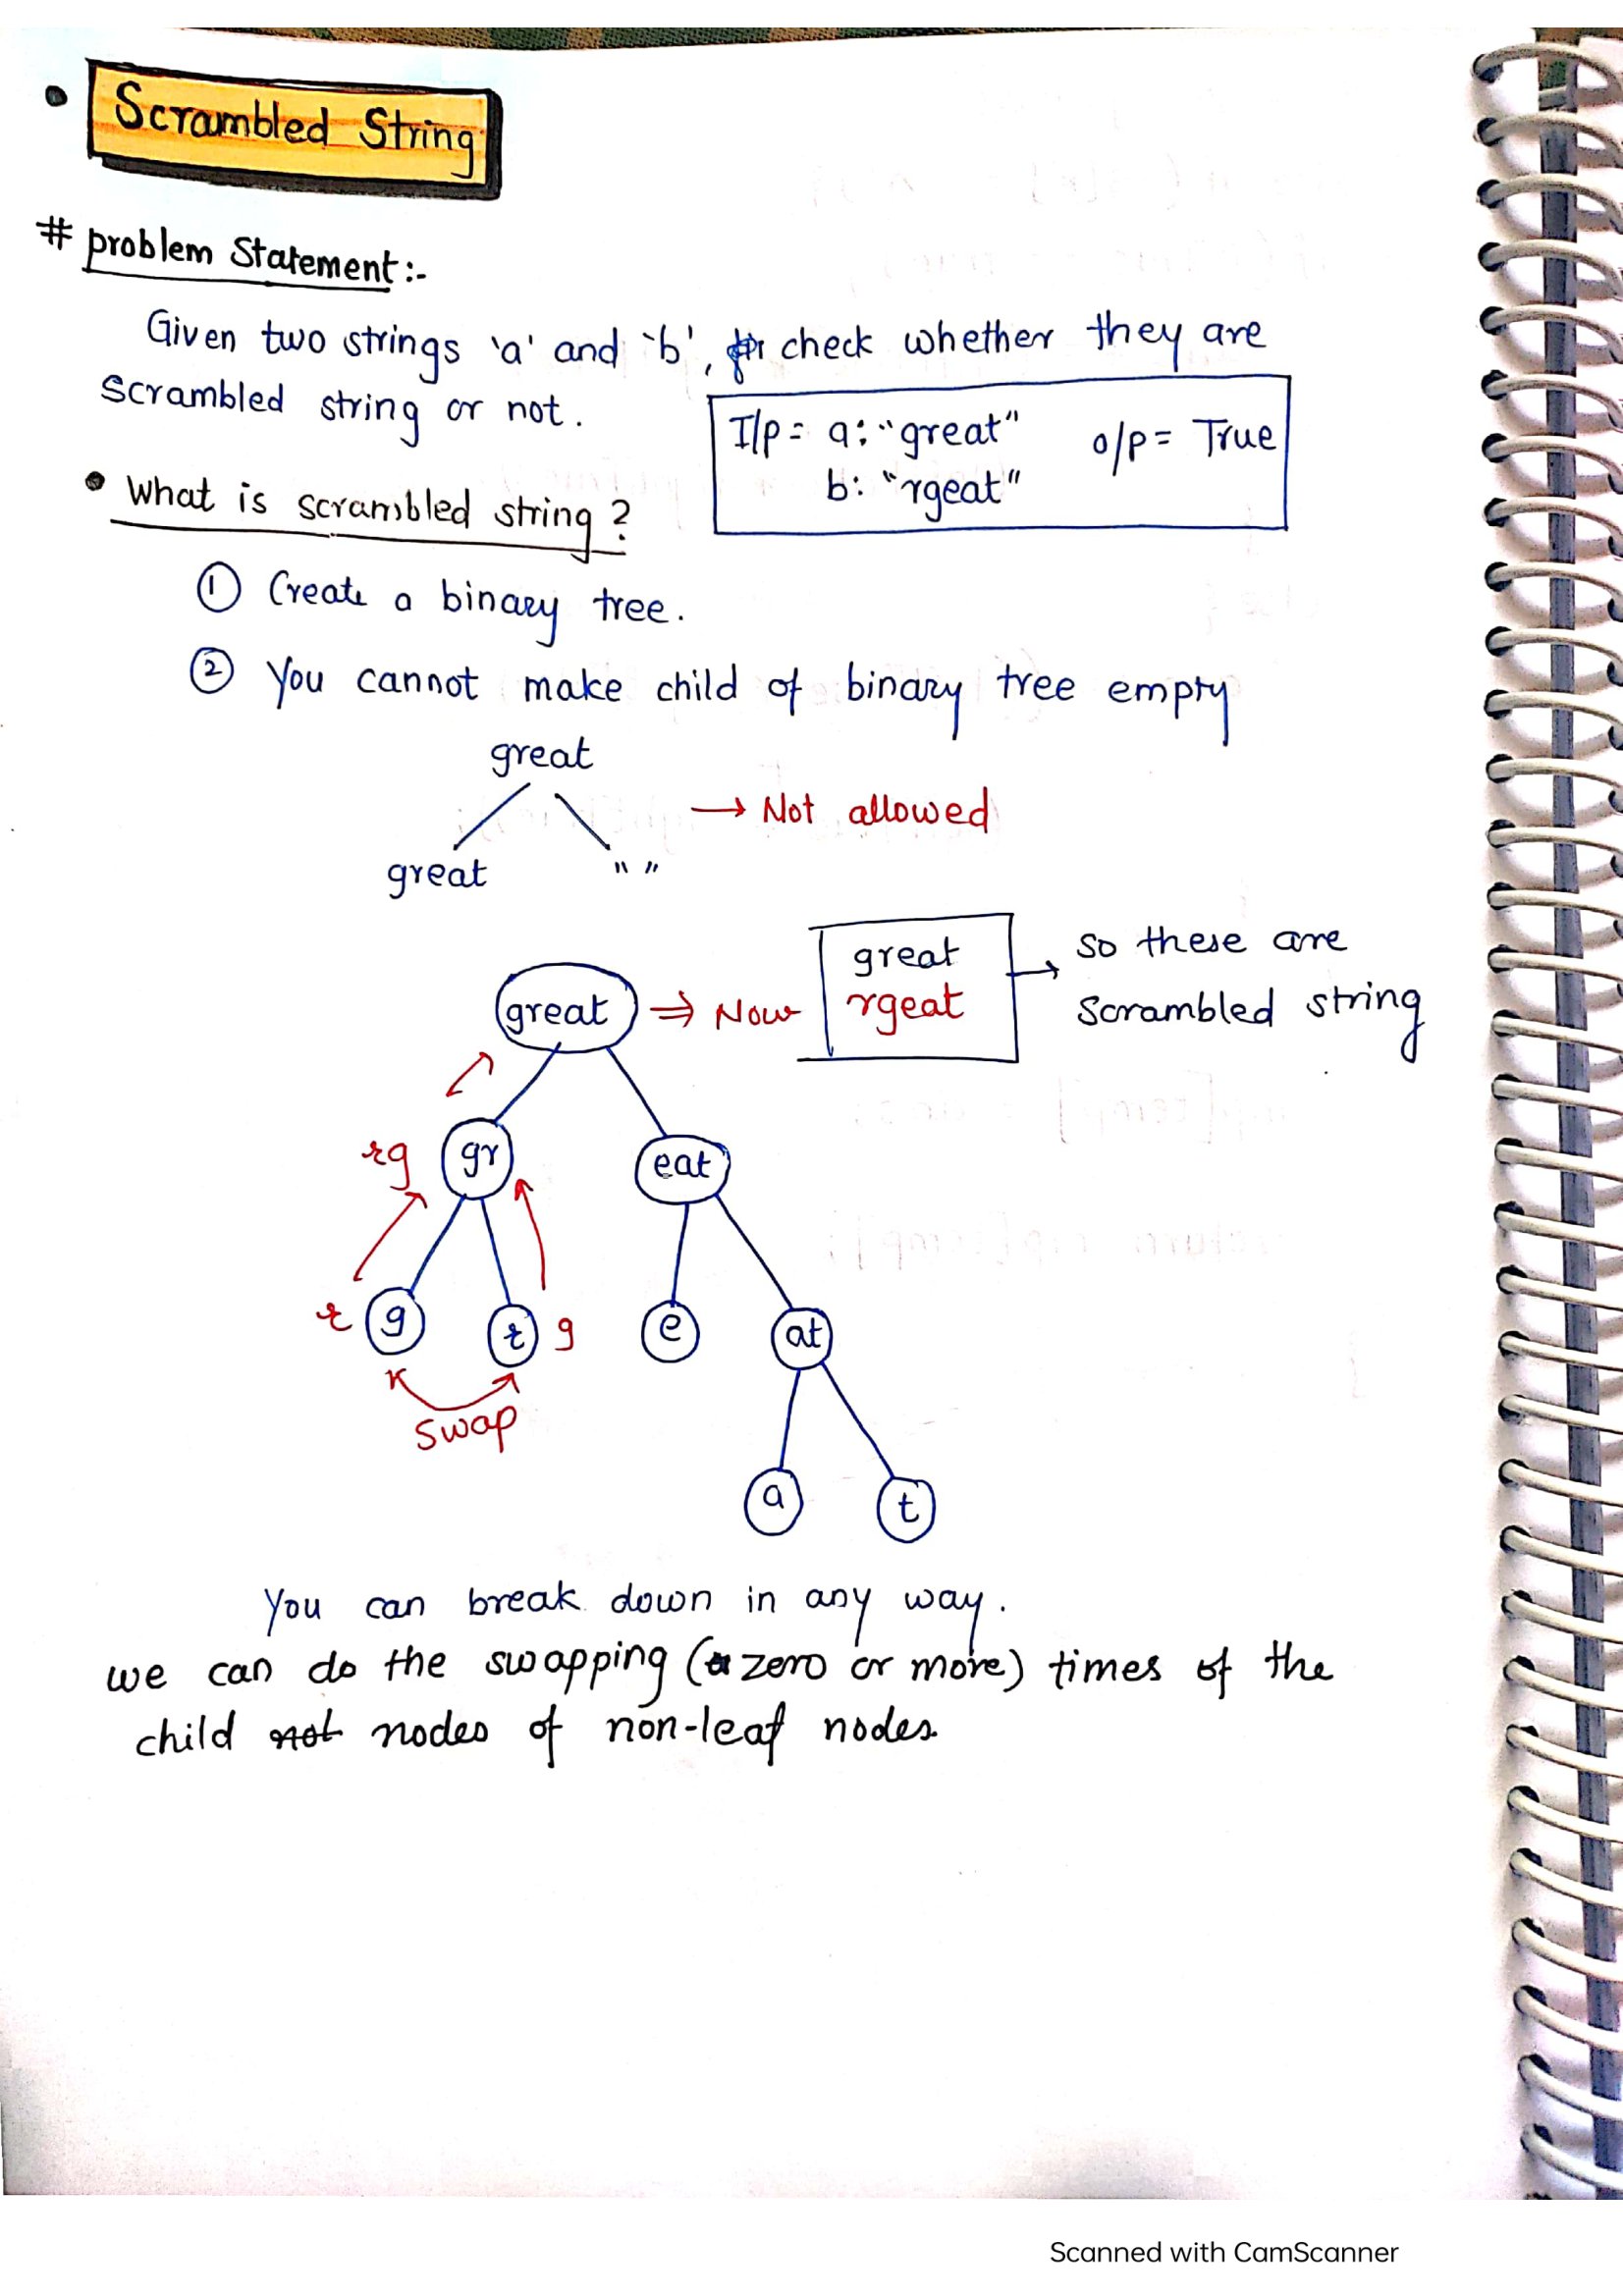 • Scrambled String
# problem Statement :-
Given two strings 'a' and 'b', check whether they are
scrambled string or not.
I/p = a: "great" o/p = True
b: "rgeat"
• What is scrambled string ?
① Create a binary tree.
② You cannot make child of binary tree empty
great
→ Not allowed
great " "
great ⇒ Now great → so these are
rgeat scrambled string
rg gr eat
r g r g e at
swap
a t
You can break down in any way.
we can do the swapping (zero or more) times of the
child not nodes of non-leaf nodes.
Scanned with CamScanner